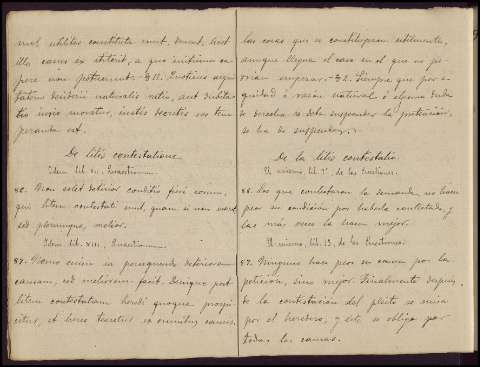 mel utiliter constituta sunt, durent, licet
ille casus ex stiterit, a quo initium ca-
pere non potuerunt.-§11. Quotiens aequi-
tatem desiderii naturalis ratio, aut dubita-
tio juris moratur, justis decretis res tem-
peranda est.
De litis contestatione
Idem lib. VI, Quaestionum.
86. Non solet deterior conditio fieri eorum,
qui litem contestati sunt, quam si non
sed plerumque, melior.
Idem lib. XIII, Quaestionum.
87.- Nemo enim in persequendo deteriorem
causam, sed meliorem facit. Denique post
litem contestatam heredi quoque prospi-
citur, et heres tenetur ex omnibus causis.
las cosas que se constituyeron utilmente,
aunque llegue el caso en el que no po-
drian empezar.-§2. Siempre que por e-
quidad ó razon natural ó alguna duda
de derecho se deba suspender la pretensión,
se ha de suspender.
De la litis contestatio
El mismo, lib. 6º, de las Cuestiones.
86. Los que contestaron la demanda no hacen
peor su condición por haberla contestado, y
las más veces la hacen mejor.
El mismo, lib. 13, de las Cuestiones.
87. Ninguno hace peor su causa por la
petición, sino mejor. Finalmente después
de la contestación del pleito se mira
por el heredero, y este se obliga por
todas las causas.